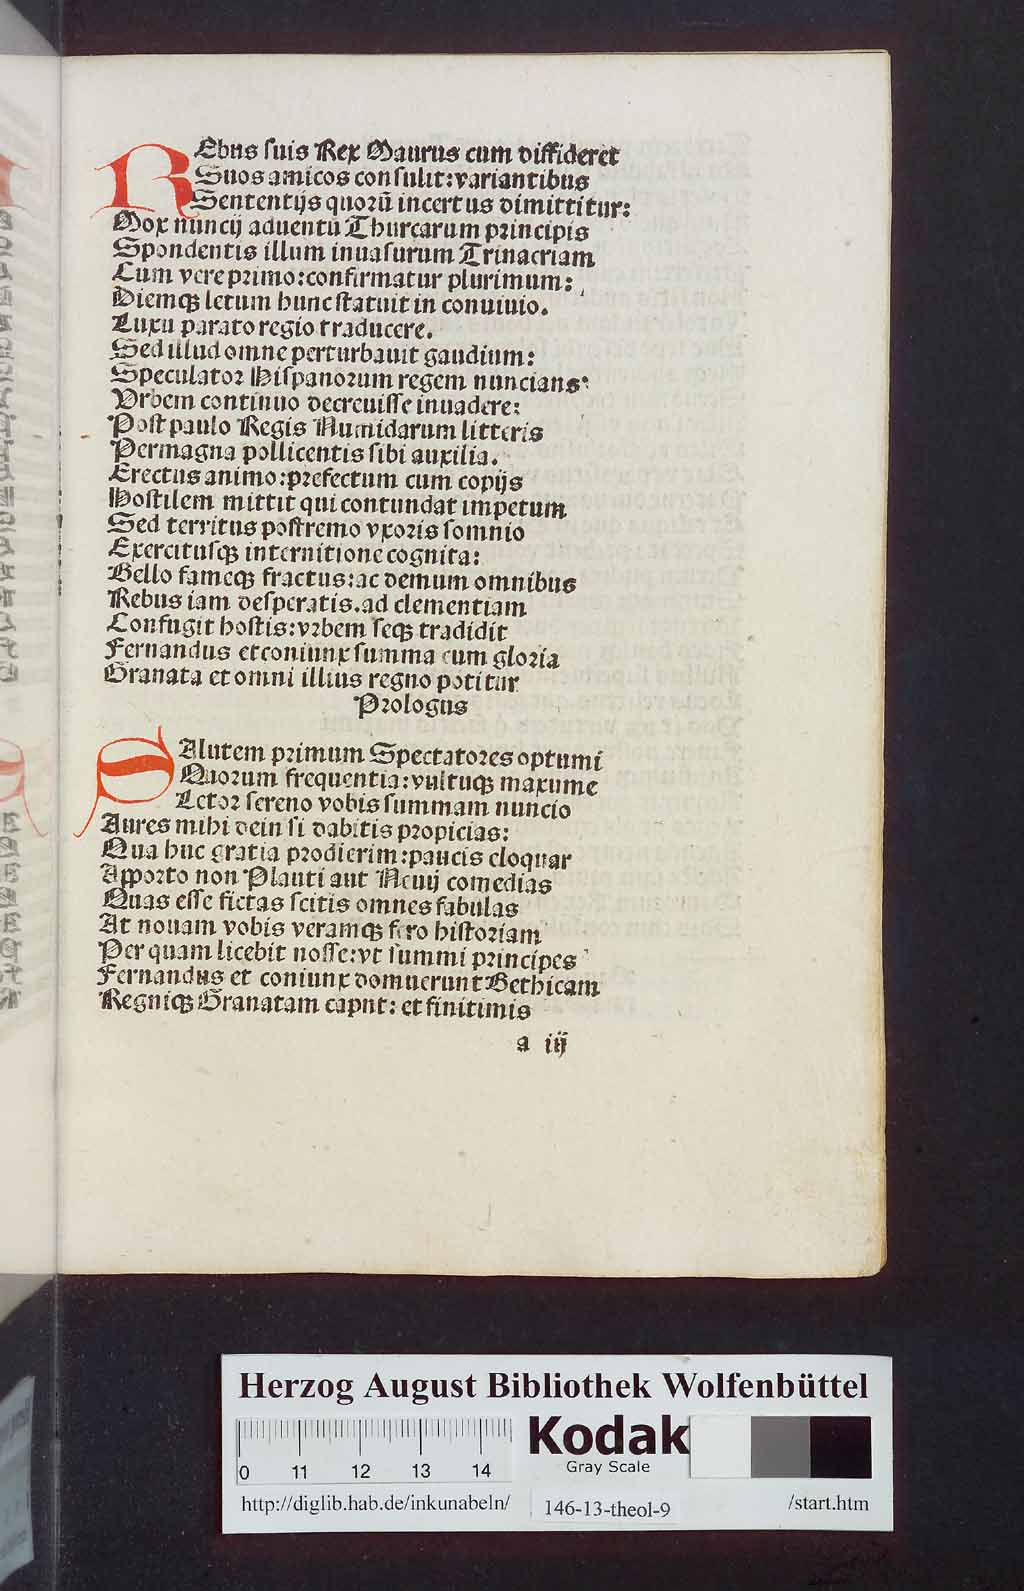 REbus suis Rex Maurus cum diffideret
Suos amicos consulit: variantibus
Sententijs quorū incertus dimittitur:
Mox nuncij aduentū Thurcarum principis
Spondentis illum inuasurum Trinacriam
Cum vere primo: confirmatur plurimum:
Diemqȝ letum hunc statuit in conuiuio.
Luxu parato regio traducere.
Sed illud omne perturbauit gaudium:
Speculator Hispanorum regem nuncians
Vrbem continuo decreuisse inuadere:
Post paulo Regis Numidarum litteris
Permagna pollicentis sibi auxilia.
Erectus animo: prefectum cum copijs
Hostilem mittit qui contundat impetum
Sed territus postremo vxoris somnio
Exercitusqȝ internitione cognita:
Bello fameqȝ fractus: ac demum omnibus
Rebus iam desperatis. ad clementiam
Confugit hostis: vrbem seqȝ tradidit
Fernandus et coniunx summa cum gloria
Granata et omni illius regno potitur
Prologus
SAlutem primum Spectatores optumi
Quorum frequentia: vultuqȝ maxume
Lector sereno vobis summam nuncio
Aures mihi dein si dabitis propicias:
Qua huc gratia prodierim: paucis eloquar
Apporto non Plauti aut Neuij comedias
Quas esse fictas scitis omnes fabulas
At nouam vobis veramqȝ fero historiam
Per quam licebit nosse: vt summi principes
Fernandus et coniunx domuerunt Bethicam
Regniqȝ Granatam caput: et finitimis
a iij
Herzog August Bibliothek Wolfenbüttel
Kodak
Gray Scale
0 11 12 13 14
http://diglib.hab.de/inkunabeln/ 146-13-theol-9 /start.htm